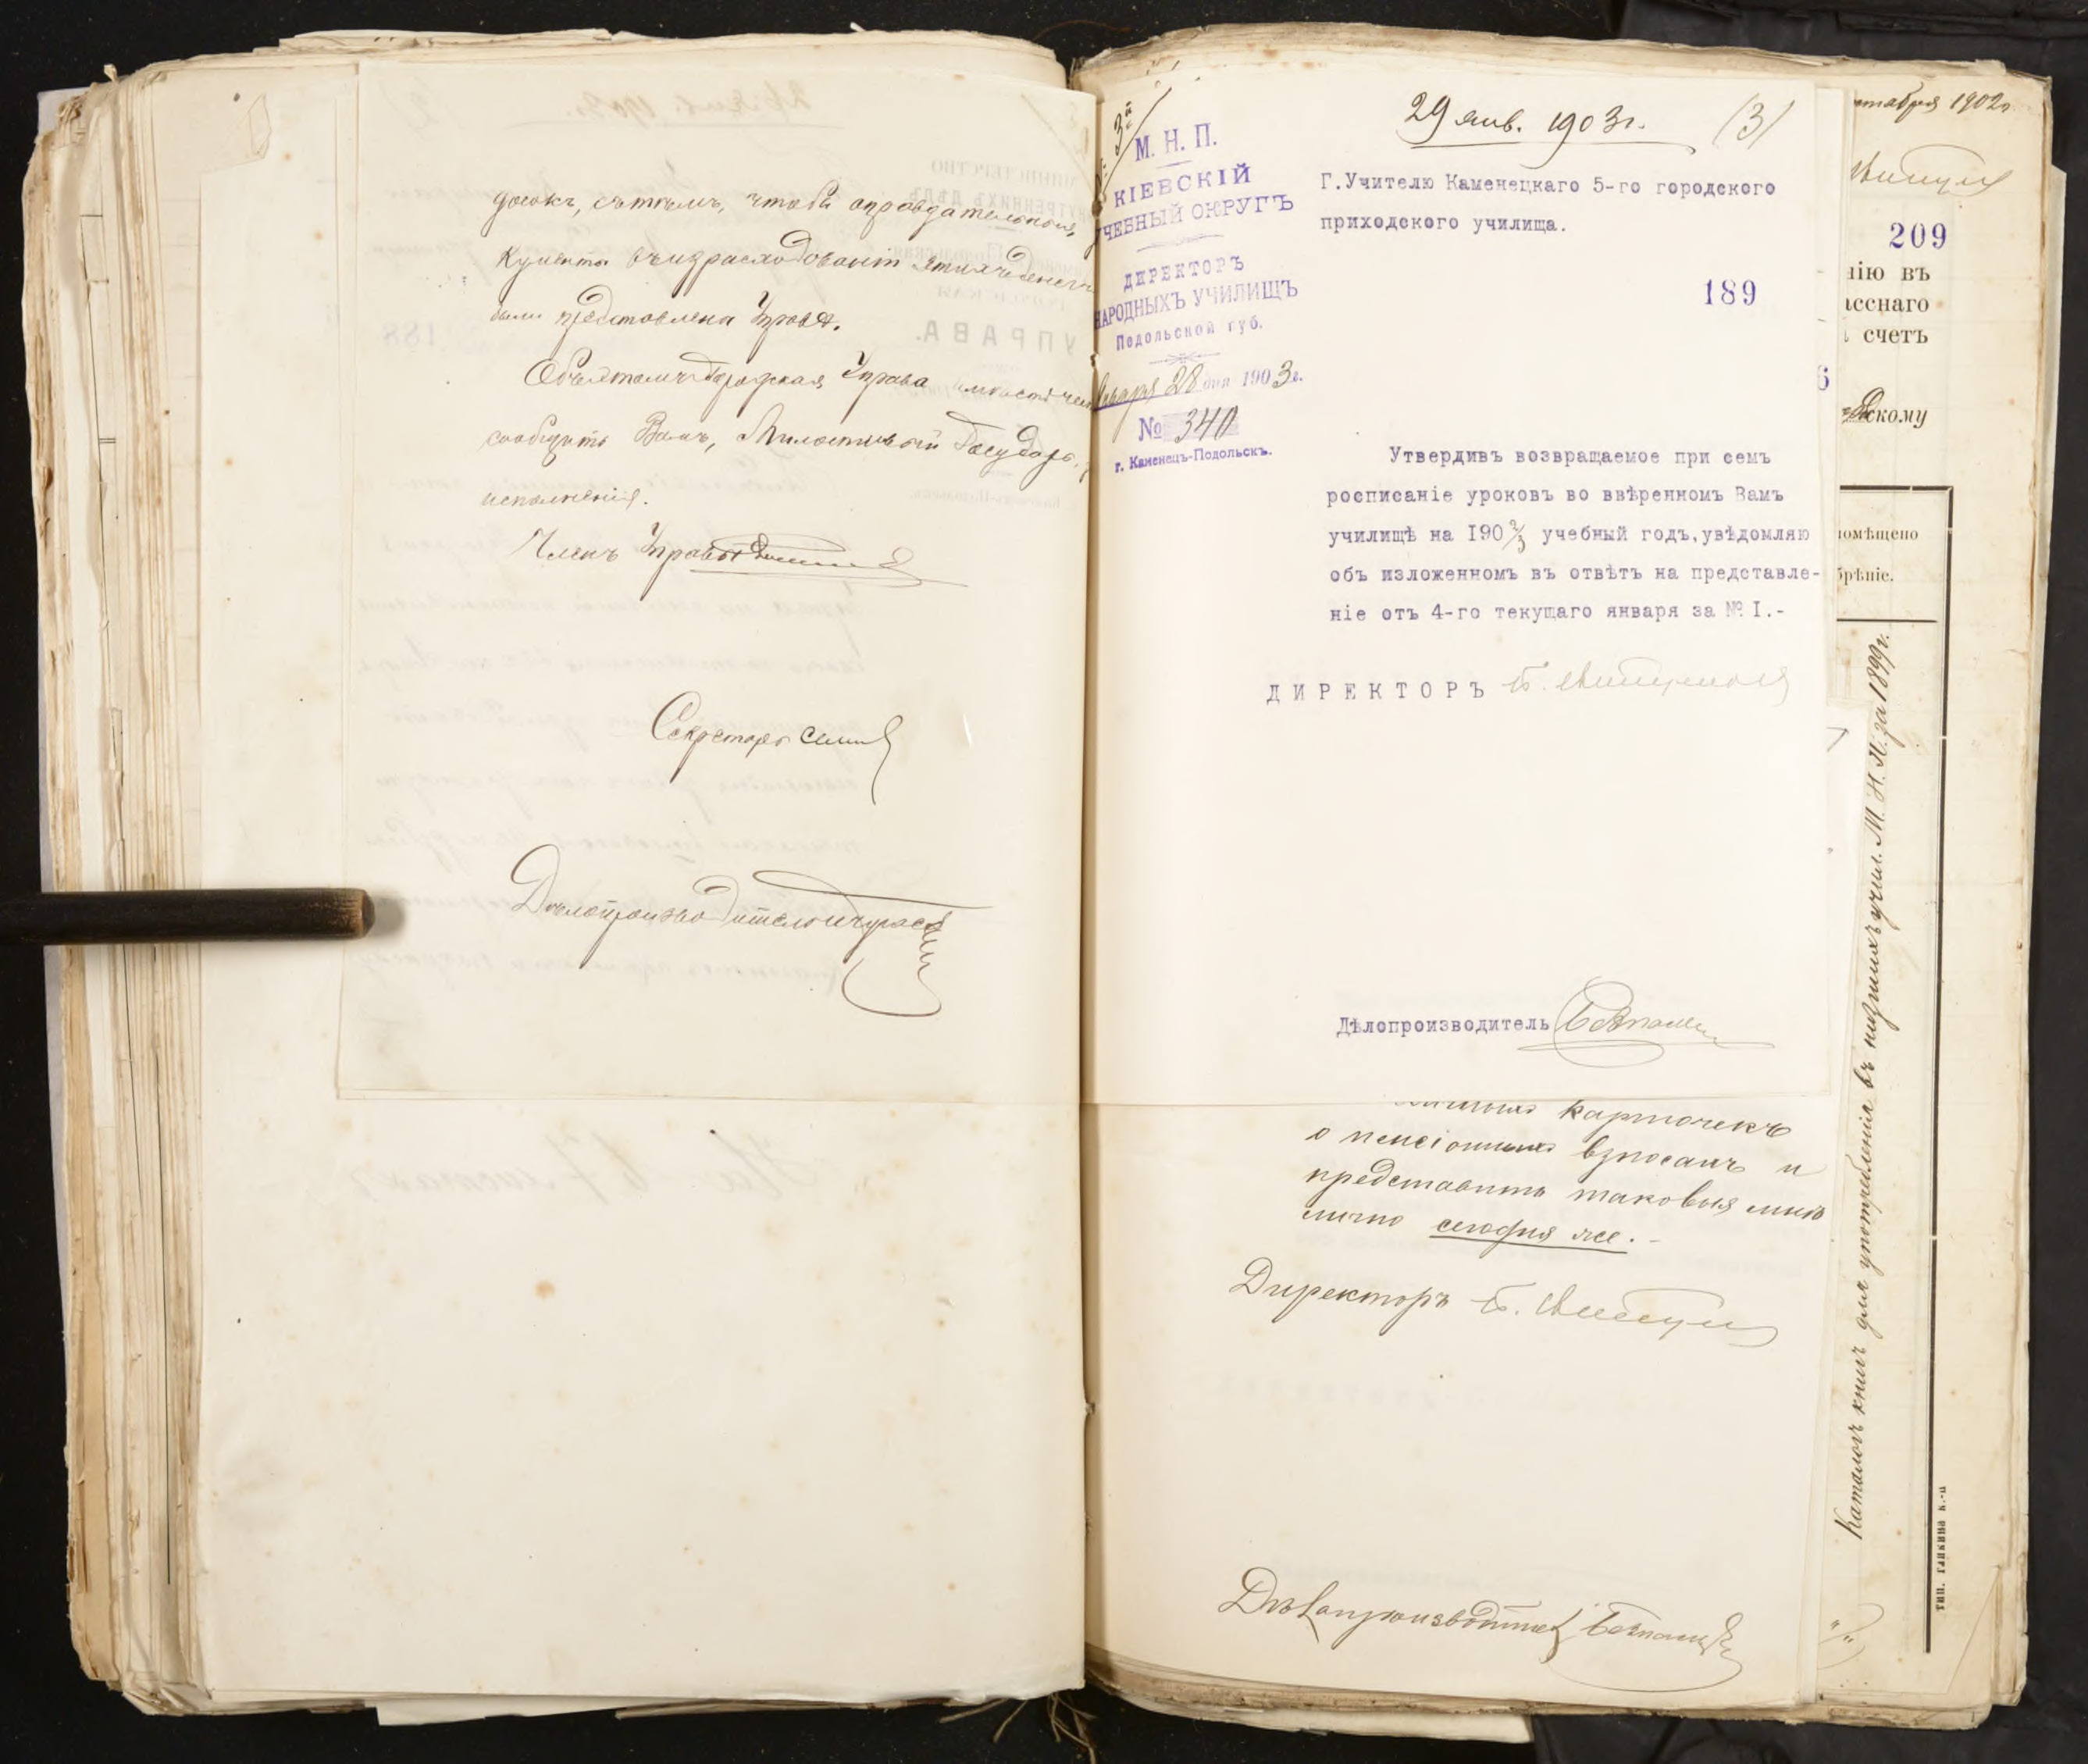 досокъ, съ тѣмъ, чтобы оправдательные
кументы въ израсходованіи этихъ денегъ
были представлены Управѣ.
Объ этомъ Городская Управа имѣетъ честь
сообщить Вамъ, Милостивый Государь,
исполненія.
Членъ Управы
Секретарь
Дѣлопроизводитель
29 янв. 1903 г.
(3)
М. Н. П.
КІЕВСКІЙ
УЧЕБНЫЙ ОКРУГЪ
ДИРЕКТОРЪ
НАРОДНЫХЪ УЧИЛИЩЪ
Подольской губ.
Января 28 дня 1903 г.
№ 340
г. Каменецъ-Подольскъ.
Г.Учителю Каменецкаго 5-го городского
приходского училища.
189
Утвердивъ возвращаемое при семъ
росписаніе уроковъ во ввѣренномъ Вамъ
училищѣ на 190 2/3 учебный годъ, увѣдомляю
объ изложенномъ въ отвѣтъ на представле-
ніе отъ 4-го текущаго января за № I.-
ДИРЕКТОРЪ
Дѣлопроизводитель
карточекъ
о пенсіонныхъ взносахъ и
представить таковыя мнѣ
лично сегодня же.-
Директоръ
Дѣлопроизводитель
тября 1902 г.
209
нію въ
асснаго
счетъ
скому
помѣщено
брѣніе.
Каталогъ книгъ для употребленія въ низшихъ учил. М. Н. П. за 1899 г.
ТИП. ГЛИКИНА К.-П